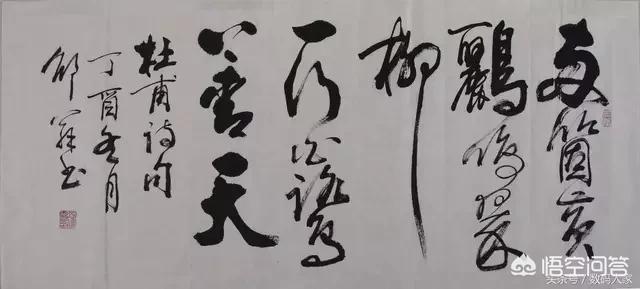 两箇黄
鸝鳴翠
柳
一行白鷺
上青天
杜甫詩句
丁酉冬月
书
悟空问答
头条号/数码大家